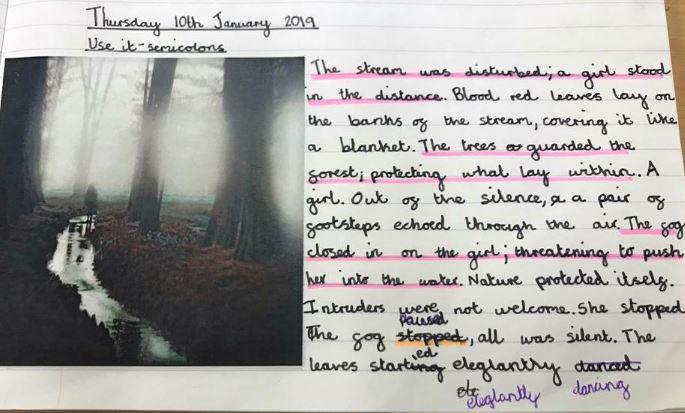 Thursday 10th January 2019
Use it - semicolons
The stream was disturbed; a girl stood
in the distance. Blood red leaves lay on
the banks of the stream, covering it like
a blanket. The trees guarded the
forest; protecting what lay within. A
girl. Out of the silence, a pair of
footsteps echoed through the air. The fog
closed in on the girl; threatening to push
her into the water. Nature protected itself.
Intruders were not welcome. She stopped
paused
The fog stopped, all was silent. The
ed
leaves starting eleglantly danced
eleglantly dancing